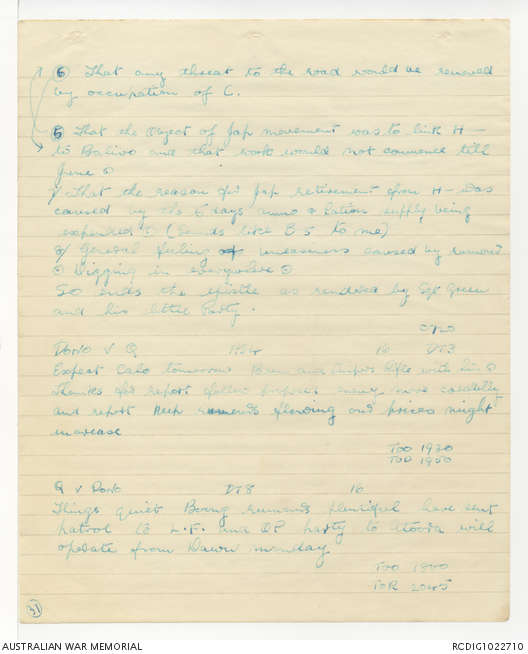 ⑥ That any threat to the road would be removed
by occupation of C.
⑤ That the object of Jap movement was to link H-
to Balivo and that work would not commence till
June ⊙
7/ That the reason for Jap retirement from H- was
caused by the 6 days ammo & ration supply being
expended ⊙ (Sounds like B S to me)
8/ General feeling of uneasiness caused by rumours
⊙ Digging in everywhere ⊙
So ends the epistle as rendered by Sgt Green
and his little Party.
Dono V Q 16 DT3
Expect Calo tomorrow Bren and Snipers Rifle with him ⊙
Thanks for report follow purposes very more carefully
and report keep rumours flowing and prices might
increase
TOO 1930
TOD 1950
Q V Dono DT8 16
Things quiet Boong rumours plentiful have sent
patrol to L.F. and OP party to Atoova will
operate from Dawn Monday
TOO 1800
TOR 2045
31
AUSTRALIAN WAR MEMORIAL
RCDIG1022710